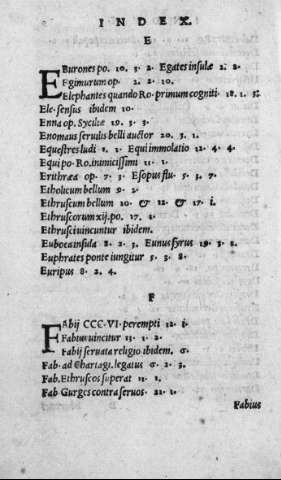 INDEX.
E
EBurones po. 10. 3. 2. Egates insulæ 2. 2.
Egimurum op. 2. 2. 10.
Elephantes quando Ro. primum cogniti 18. 1. 3.
Ele. sensus ibidem 10.
Enna op. Syciliæ 19. 3. 2.
Enomaus seruilis belli auctor 20. 3. 1.
Equestres ludi 1. 2. Equi immolatio 12. 4. 4.
Equi po. Ro. inimicissimi 11. 1.
Erithræa op. 7. 3. Esopus flu. 5. 3. 7.
Etholicum bellum 9. 2.
Ethruscum bellum 10. & 12. & 17. i.
Ethruscorum xij. po. 17. 1.
Ethrusci uincuntur ibidem.
Euboea insula 8. 2. 3. Eunus syrus 19. 3. 2.
Euphrates ponte iungitur 5. 3. 8.
Euripus 8. 2. 4.
F
FAbij CCC. VI. perempti 12. i.
Fabius uincitur 13. 1. 2.
Fabij seruata religio ibidem. 6.
Fab. ad Chartagi. legatus 6. 2. 3.
Fab. Ethruscos superat 11. 1.
Fab Gurges contra seruos. 21. 1.
Fabius